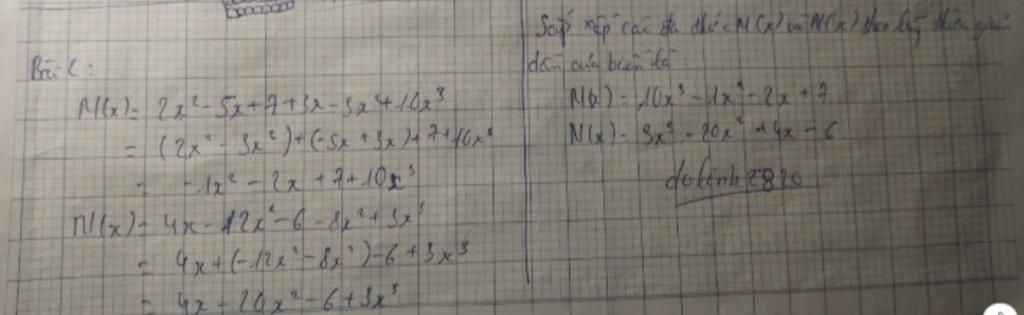 Bài 2:
M(x) = 2x² - 5x + 7 + 3x - 3x² + 10x³
= (2x² - 3x²) + (-5x + 3x) + 7 + 10x³
= -1x² - 2x + 7 + 10x³
N(x) = 4x - 12x² - 6 - 8x² + 3x³
= 4x + (-12x² - 8x²) - 6 + 3x³
= 4x - 20x² - 6 + 3x³
Sắp xếp các đa thức M(x) và N(x) theo lũy thừa giảm
dần của biến là:
M(x) = 10x³ - 1x² - 2x + 7
N(x) = 3x³ - 20x² + 4x - 6